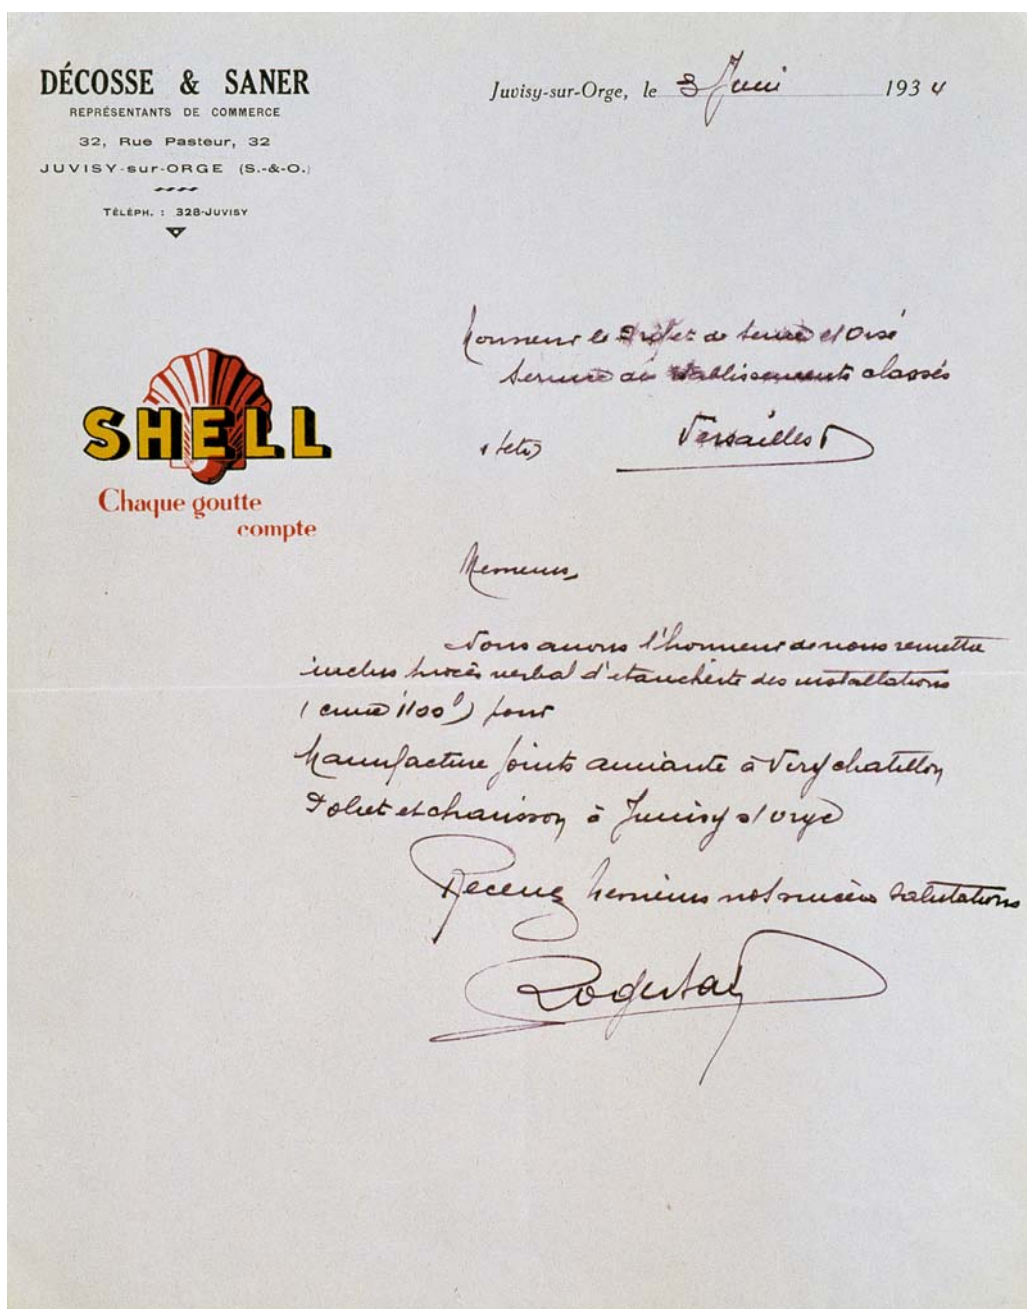 DÉCOSSE & SANER
REPRÉSENTANTS DE COMMERCE
32, Rue Pasteur, 32
JUVISY-sur-ORGE (S.-&-O.)
TÉLÉPH. : 328-JUVISY
Juvisy-sur-Orge, le 3 Juin 1934
SHELL
Chaque goutte
compte
Monsieur le Préfet de Seine et Oise
Service des établissements classés
Versailles
Messieurs,
Nous avons l'honneur de vous remettre
inclus procès verbal d'étanchéité des installations
(cuve) pour
Manufacture joints amiante à Viry chatillon
et chausson à Juvisy s/ orge
Recevez Messieurs nos sincères salutations